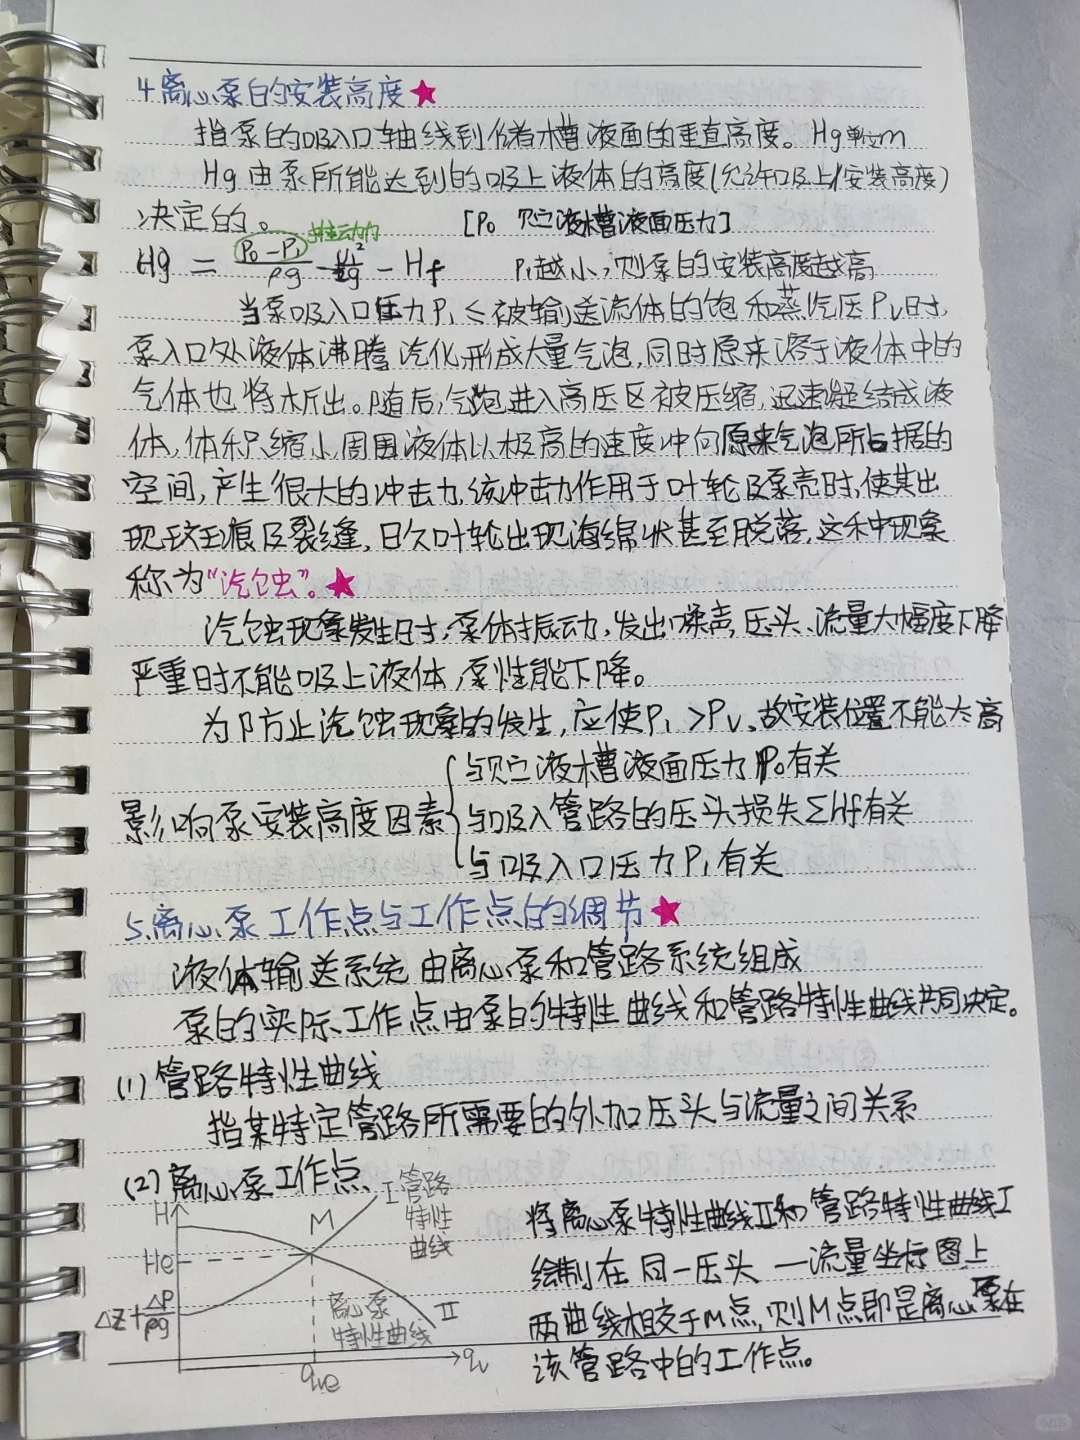 4.离心泵的安装高度★
指泵的吸入口轴线到储槽液面的垂直高度。Hg单位m
Hg由泵所能达到的吸上液体的高度(允许吸上/安装高度)
决定的。 [P₀ 贮液槽液面压力]
推动力
Hg = (P₀-P₁)/ρg - u₁²/2g - Hf P₁越小,则泵的安装高度越高
当泵吸入口压力P₁≤被输送流体的饱和蒸汽压Pv时,
泵入口处液体沸腾汽化形成大量气泡,同时原来溶于液体中的
气体也将析出。随后,气泡进入高压区被压缩,迅速凝结成液
体,体积缩小,周围液体以极高的速度冲向原来气泡所占据的
空间,产生很大的冲击力,该冲击力作用于叶轮及泵壳时,使其出
现斑痕及裂缝,日久叶轮出现海绵状甚至脱落,这种现象
称为“汽蚀”。★
汽蚀现象发生时,泵体振动,发出噪声,压头、流量大幅度下降
严重时不能吸上液体,泵性能下降。
为防止汽蚀现象的发生,应使P₁>Pv,故安装位置不能太高
与贮液槽液面压力P₀有关
影响泵安装高度因素{与吸入管路的压头损失Σhf有关
与吸入口压力P₁有关
5.离心泵工作点与工作点的调节★
液体输送系统由离心泵和管路系统组成
泵的实际工作点由泵的特性曲线和管路特性曲线共同决定。
(1)管路特性曲线
指某特定管路所需要的外加压头与流量之间关系
(2)离心泵工作点
H
M
I管路
特性
曲线
He
ΔZ+ΔP/ρg
离心泵
特性曲线
II
qv
qve
将离心泵特性曲线II和管路特性曲线I
绘制在同一压头—流量坐标图上
两曲线相交于M点,则M点即是离心泵在
该管路中的工作点。